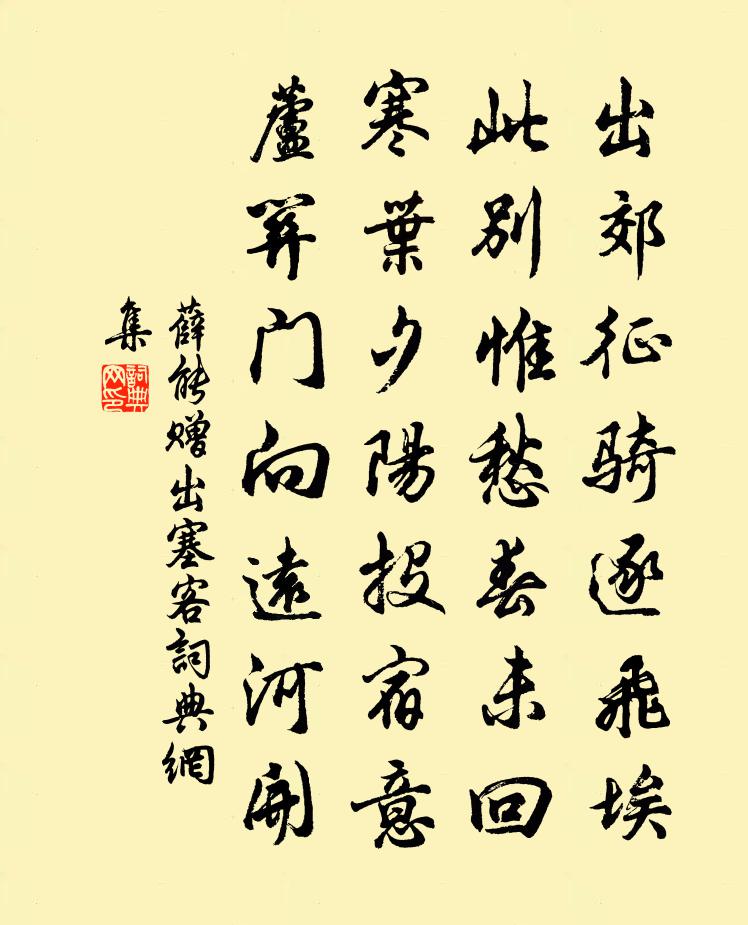 出郊征騎逐飛埃
此別惟愁春未回
寒葉夕陽投宿意
蘆關門向遠河開
薛能赠出塞客詞典網
集
詞典网印